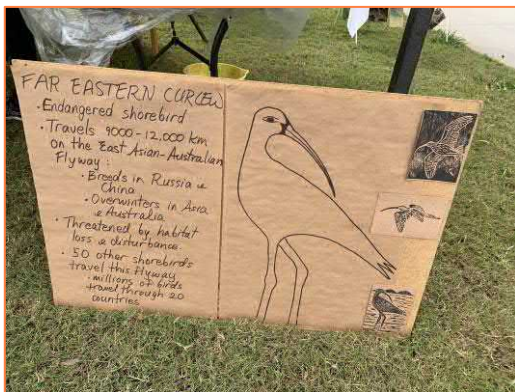 FAR EASTERN CURLEW
· Endangered shorebird
· Travels 9000-12,000 km
on the East Asian-Australian
Flyway :
· Breeds in Russia &
China
· Overwinters in Asia
& Australia
· Threatened by habitat
loss & disturbance.
· 50 other shorebirds
travel this flyway
· millions of birds
travel through 20
countries